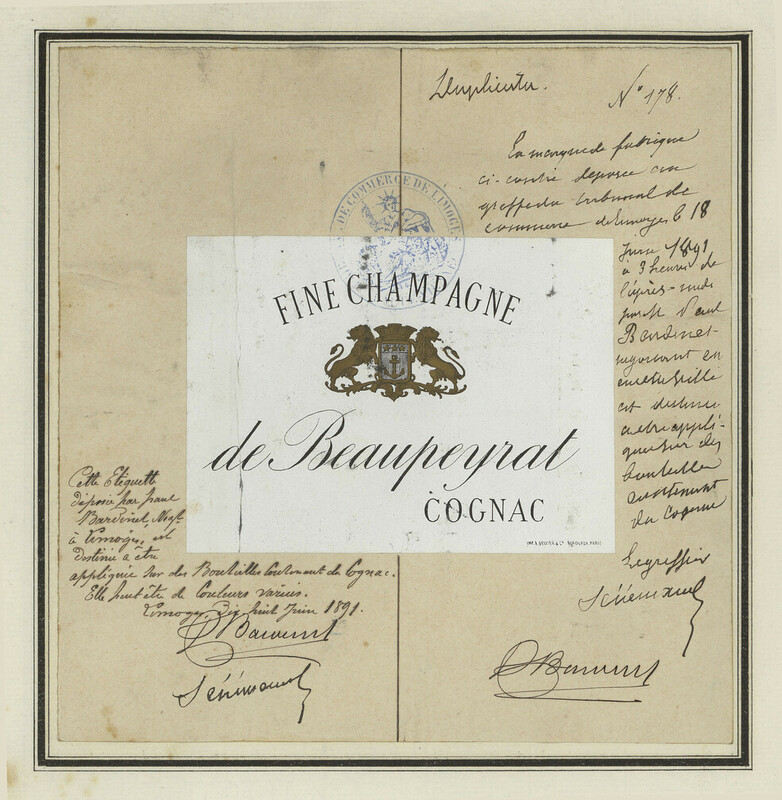 Duplicata.
N° 178.
La marque de fabrique
ci-contre déposée au
greffe du tribunal de
commerce de Limoges le 18
Juin 1891
à 3 heures de
l'après-midi
par M. Paul
Bardinet
négociant en
cette ville
est destinée
à être appli-
quée sur des
bouteilles
contenant
du Cognac
Le greffier
DE COMMERCE DE LIMOGES
FINE CHAMPAGNE
de Beaupeyrat
COGNAC
Cette Etiquette
déposée par Paul
Bardinet, Négt
à Limoges, est
destinée à être
appliquée sur des Bouteilles contenant du Cognac.
Elle peut être de Couleurs variées.
Limoges, dix huit Juin 1891.
P Bardinet
P Bardinet